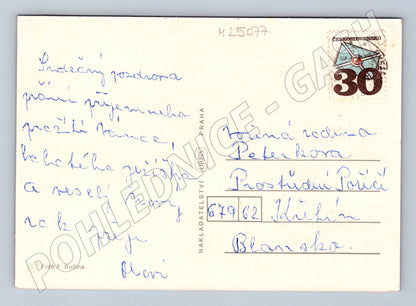 H 255077
ČESKOSLOVENSKO
30
Srdečný pozdrav a
přání příjemného
prožití Vánoc,
bohatého Ježíška
a veselý Nový
rok přeje
Foto F. Bučina
NAKLADATELSTVÍ ORBIS PRAHA
Vážená rodina
Peterkova
Prostřední Poříčí
679 62 Křetín
Blansko.
POHLEDNICE - GASH